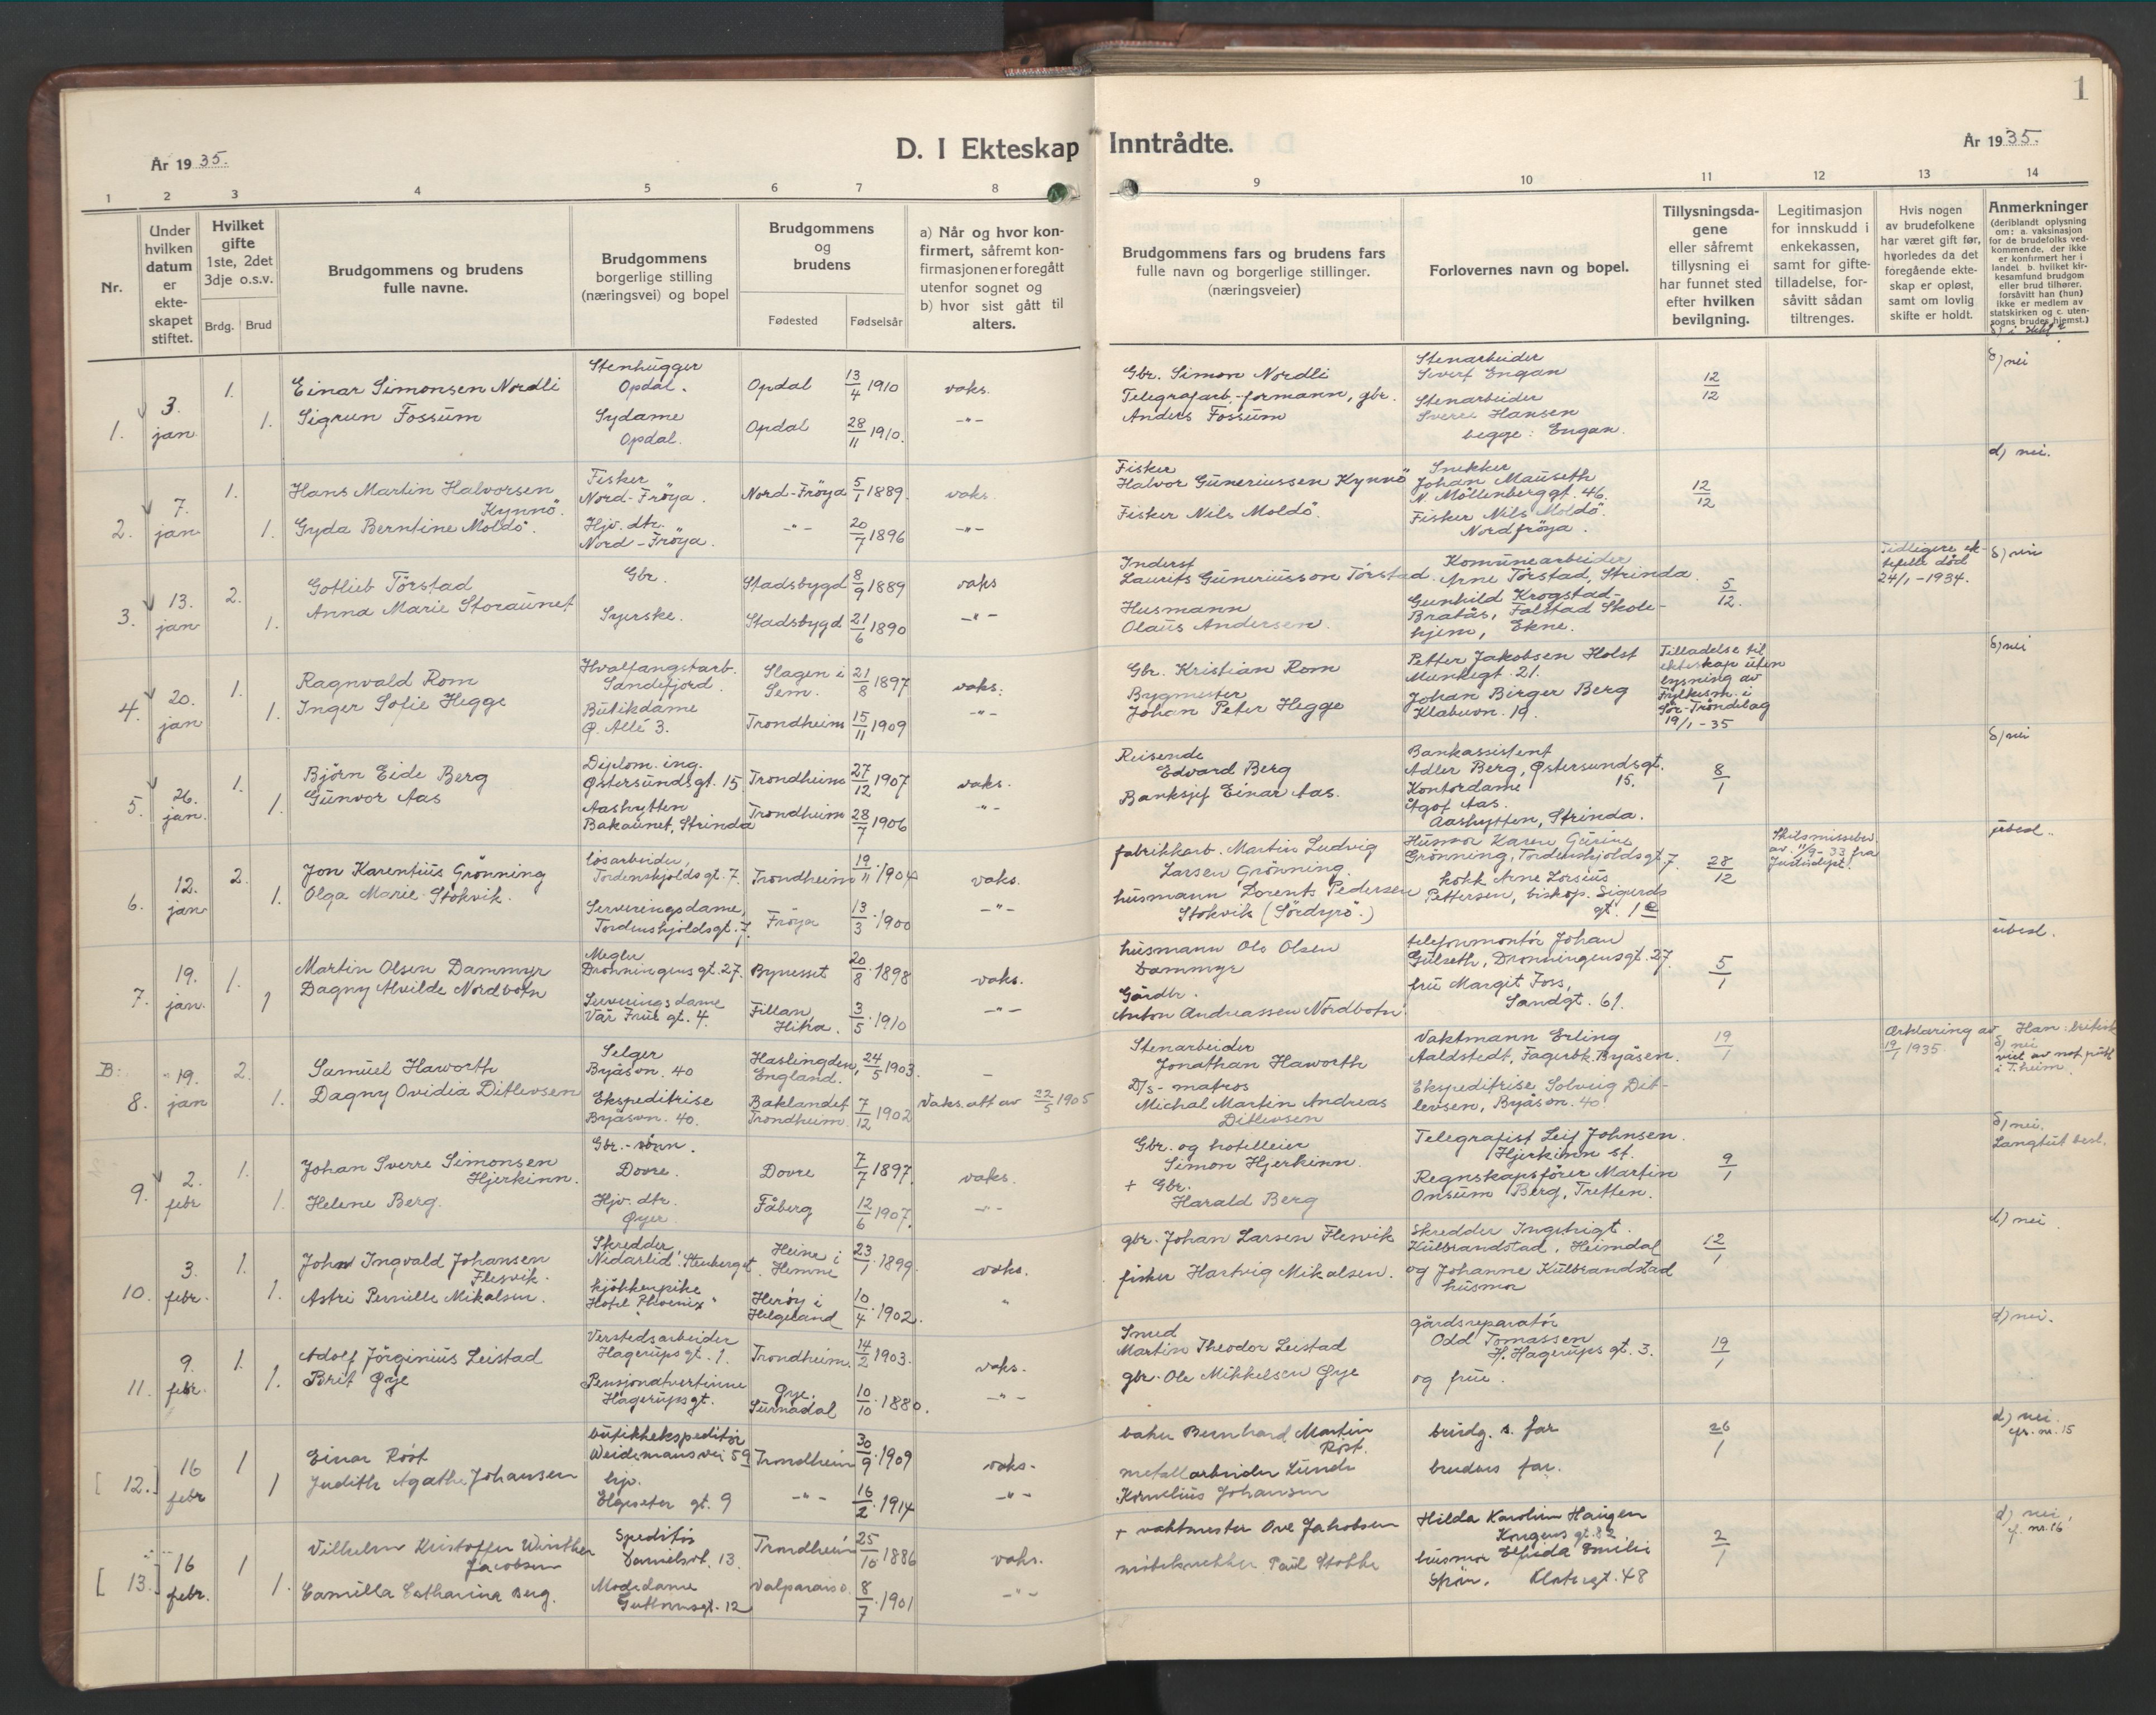 1
År 1935.
D. I Ekteskap Inntrådte.
År 1935.
1 2 3 4 5 6 7 8 9 10 11 12 13 14
Nr.
Under hvilken datum er ekteskapet stiftet.
Hvilket gifte 1ste, 2det 3dje o.s.v.
Brdg. Brud
Brudgommens og brudens fulle navne.
Brudgommens borgerlige stilling (næringsvei) og bopel
Brudgommens og brudens
Fødested Fødselsår
a) Når og hvor konfirmert, såfremt konfirmasjonen er foregått utenfor sognet og b) hvor sist gått til alters.
Brudgommens fars og brudens fars fulle navn og borgerlige stillinger. (næringsveier)
Forlovernes navn og bopel.
Tillysningsdagene eller såfremt tillysning ei har funnet sted efter hvilken bevilgning.
Legitimasjon for innskudd i enkekassen, samt for giftetilladelse, forsåvitt sådan tiltrenges.
Hvis nogen av brudefolkene har været gift før, hvorledes da det föregående ekteskap er opløst, samt om lovlig skifte er holdt.
Anmerkninger (deriblandt oplysning om: a. vaksinasjon for de brudefolks vedkommende, der ikke er konfirmert her i landet b. hvilket kirkesamfund brudgom eller brud tilhører, forsåvitt han (hun) ikke er medlem av statskirken og c. utensogns brudes hjemst.)
1. 3. jan 1. Einar Simonsen Nordli Stenhugger Opdal. Opdal 13/4 1910 vaks. Gbr. Simon Nordli Stenarbeider Sivert Engan 12/12 d) nei
1. Sigrun Fossum Sydame Opdal. Opdal 28/11 1910. -"- Telegrafarb.-formann, gbr. Anders Fossum Stenarbeider Sverre Hansen begge: Engan.
2. 7. jan 1. Hans Martin Halvorsen Kynnö. Fisker Nord-Frøya. Nord-Frøya 5/1 1889. vaks. Fisker Halvor Güneriussen Kynnö Snekker Johan Mauseth N. Möllenberggt. 46. 12/12 d) nei.
1. Gyda Berntine Moldö. Hjv. dtr. Nord-Frøya. -"- 20/7 1896 -"- Fisker Nils Moldö. Fisker Nils Moldö. Nordfröya.
3. 13. jan 2. Gotlieb Törstad Gbr. Stadsbygd 8/9 1889 vaks Inderst Laurits Güneriusson Törstad. Komünearbeider Arne Törstad, Strinda. 5/12. Tidligere ektefelle död 24/1-1934. d) nei
1. Anna Marie Storaünet Syerske. Stadsbygd 21/6 1890 -"- Husmann Olaüs Andersen. Gunhild Krogstad-Bratås, Falstad Skolehjem, Ekne.
4. 20. jan 1. Ragnvald Rom Hvalfangstarb. Sandefjord. Slagen i Sem. 21/8 1897 vaks. Gbr. Kristian Rom Petter Jakobsen Holst Munkegt. 21. Tilladelse til ekteskap uten lysning av Fylkesm. i Sör-Tröndelag 19/1-35 d) nei
1. Inger Sofie Hegge Bütikdame Ø. Allé 3. Trondheim 15/11 1909 -"- Bygmester Johan Peter Hegge Johan Birger Berg Klabuvn. 19.
5. 26. jan. 1. Björn Eide Berg Diplom. ing. Østersundsgt. 15. Trondheim 27/12 1907 vaks. Reisende Edvard Berg Bankassistent Adler Berg, Østersundsgt. 15. 8/1 d) nei
1. Günvor Aas Aashytten Bakaünet, Strinda Trondheim 28/7 1906 -"- Banksjef Einar Aas. Kontordame Ågot Aas. Aashytten, Strinda.
6. 12. jan 2. Jon Karentiüs Grönning lösarbeider, Tordenskjoldsgt. 7. Trondheim 19/11 1904 vaks. fabrikkarb. Martin Ludvig Larsen Grönning. Husmor Karen Gürine Grönning, Tordenskjoldsgt. 7. 28/12 Skilsmissebev. av 11/9-33 fra Justisdept. ubesl.
1. Olga Marie Stokvik. Serveringsdame, Tordenskjoldsgt. 7. Fröya 13/3 1900 -"- husmann Dorents Pedersen Stokvik (Sördyrö.) kokk Arne Lorsius Pettersen, biskop Sigurds gt. 1e
7. 19. jan. 1. Martin Olsen Dammyr Megler Dronningensgt. 27. Bynesset 20/8 1898 vaks. husmann Ole Olsen Dammyr telefonmontör Johan Gülseth, Dronningensgt. 27. 5/1 ubesl.
1 Dagny Alvilde Nordbotn Serveringsdame Vår Frue gt. 4. Fillan, Hitra. 3/5 1910 -"- Gårdbr. Anton Andreassen Nordbotn frü Margit Foss, Sandgt. 61.
B: 8. 19. jan 2. Samüel Haworth Selger Byåsvn. 40 Haslingden, England. 24/5 1903. - Stenarbeider Jonathan Haworth Vaktmann Erling Aaldstedt, Fagerbk. Byåsen. 19/1 Erklæring av 19/1 1935. Han: britisk d) nei viet av not. publ. i T.heim.
1. Dagny Ovidia Ditlevsen Ekspeditrise Byåsvn. 40. Baklandet Trondheim 7/12 1902 Vaks. att av 22/5 1905 D/s-matros Michal Martin Andreas Ditlevsen Ekspeditrise Solveig Ditlevsen, Byåsvn. 40.
9. 2. febr 1. Johan Sverre Simonsen Hjerkinn. Gbr.-sönn. Dovre. Dovre 7/7 1897. vaks. Gbr. og hotelleier Simon Hjerkinn. Telegrafist Leif Johnsen. Hjerkinn st. 9/1 d) nei. Langtüt besl.
1. Helene Berg. Hjv. dtr. Øyer. Fåberg 12/6 1907. -"- + Gbr. Harald Berg Regnskapsförer Martin Onsüm Berg, Tretten.
10. 3. febr. 1. John Ingvald Johansen Flesvik. Skredder, Nidarlid. Stenberget. Heine i Hemne 23/1 1899. vaks. gbr. Johan Larsen Flesvik Skredder Ingebrigt Külbrandstad, Heimdal 12/1 d) nei
1. Astri Pernille Mikalsen. kjökkenpike Hotel "Phoenix" Heröy i Helgeland 10/4 1902. " fisker Hartvig Mikalsen. og Johanne Külbrandstad husmor
11. 9. febr. 1. Adolf Jörginiüs Leistad Verstedsarbeider Hagerupsgt. 1. Trondheim. 14/2 1903. vaks. Smed Martin Theodor Leistad gårdsreparatör Odd Tomassen H. Hagerüps gt. 3. 19/1 d) nei.
1. Brit Øye Pensjonatvertinne Hagerüpsgt. Øye, Sürnadal 10/10 1880. -"- gbr. Ole Mikkelsen Øye og früe.
[12.] 16 febr 1 Einar Röst bütikkekspeditör Weidemansvei 59 Trondheim 30/9 1909 vaks. baker Bernhard Martin Röst. brudg. s. far 26/1 d) nei. cfr. nr. 15
1 Judith Agathe Johansen hjv. Elgeseter gt. 9 -"- 16/2 1914 -"- metallarbeider Kornelius Johansen brudens far.
[13.] 16 febr. 1 Vilhelm Kristoffer Winther Jacobsen Speditör Danielsvt. 13. Trondheim 25/10 1886 vaks. + vaktmester Ove Jakobsen Hilda Karoline Haugen Kongens gt. 82. 2/1 d) nei, cf. nr. 16
1. Camilla Catharina Berg. Modedame Valparaiso. 8/7 1901 -"- möbelsnekker Paul husmor Emilie gt. 48